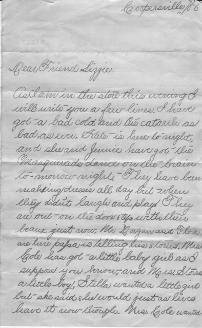 Coopersville
Dear Friend Lizzie
As I am in the store this evening I
will write you a few lines. I have
got a bad cold and the catarrh as
bad as ever. Kate is here to night,
and she and Jennie have got the
Masquerade dance on the brain
to-morrow night. They have been
making dresses all day but when
they didn't laugh and play. They
are out on the door step with their
beaux just now. Mr
are here papa is telling his stories. Mrs
Cole has got a little baby girl as I
suppose you know, and Mrs
a little boy. Stella wanted a little girl
but she said she would just as lives
have it now though. Mrs Cole wanted